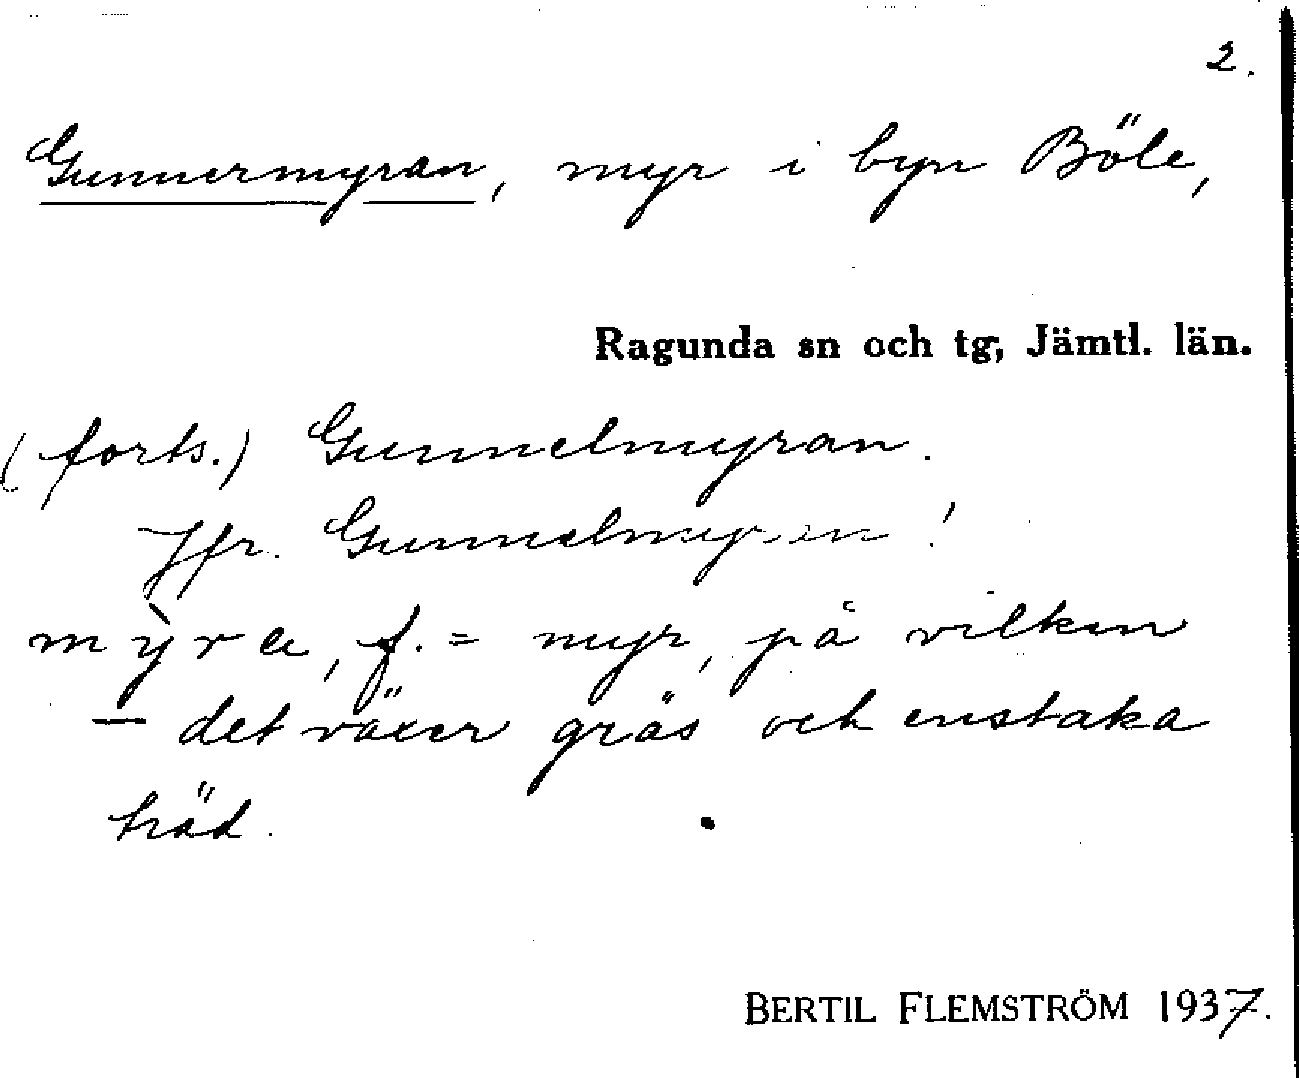 2.
Gunnermyran, myr i byn Böle,
Ragunda sn och tg, Jämtl. län.
(forts.) Gunnelmyran.
Jfr. Gunnelmyran!
mỳra, f. = myr, på vilken
— det växer gräs och enstaka
träd.
BERTIL FLEMSTRÖM 1937.